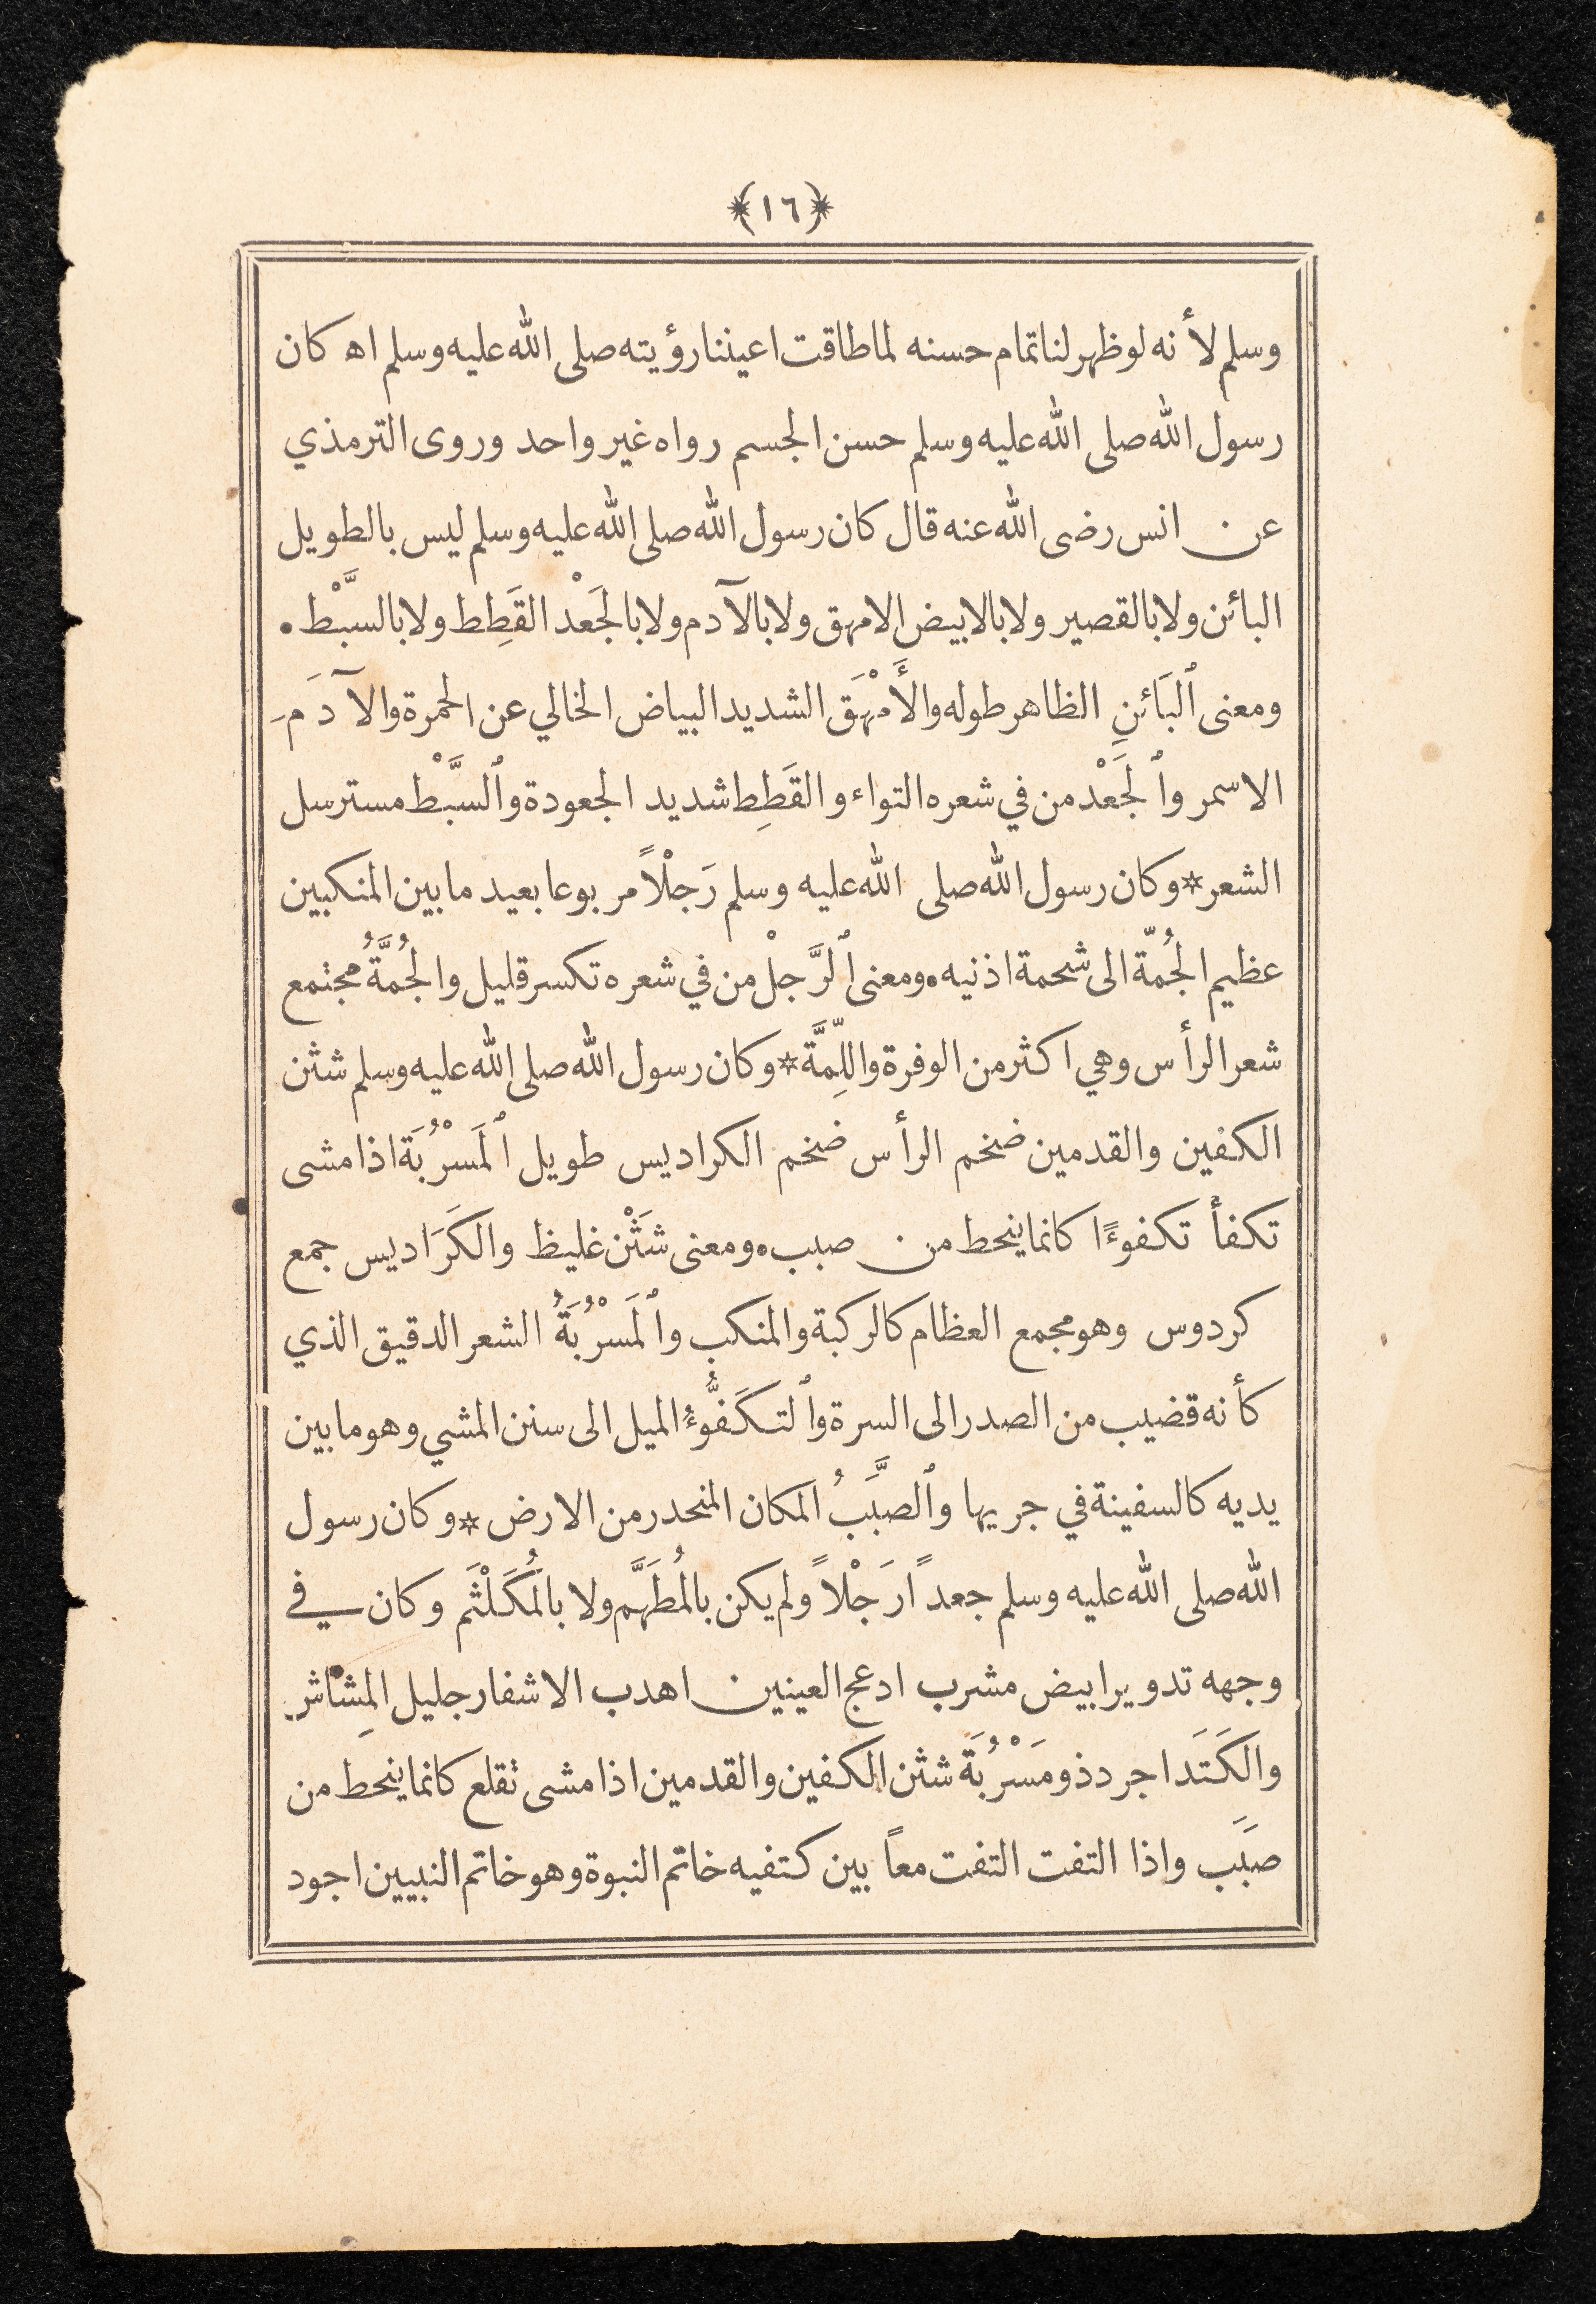 ﴿١٦﴾
وسلم لأنه لو ظهر لنا تمام حسنه لما طاقت اعيننا رؤيته صلى الله عليه وسلم اه كان
رسول الله صلى الله عليه وسلم حسن الجسم رواه غير واحد وروى الترمذي
عن انس رضى الله عنه قال كان رسول الله صلى الله عليه وسلم ليس بالطويل
البائن ولا بالقصير ولا بالابيض الامهق ولا بالآدم ولا بالجَعْد القَطِط ولا بالسَّبْط •
ومعنى ٱلبَائنِ الظاهر طوله والأَمْهَق الشديد البياض الخالي عن الحمرة والآدَم
الاسمر وٱلجَعْد من في شعره التواء والقَطِط شديد الجعودة وٱلسَّبْط مسترسل
الشعر * وكان رسول الله صلى الله عليه وسلم رَجْلاً مربوعا بعيد ما بين المنكبين
عظيم الجُمّة الى شحمة اذنيه • ومعنى ٱلرَّجْل من في شعره تكسر قليل والجُمَّةُ مجتمع
شعر الرأس وهي اكثر من الوفرة واللِّمَّة * وكان رسول الله صلى الله عليه وسلم شثن
الكفين والقدمين ضخم الرأس ضخم الكراديس طويل ٱلمَسْرُبَة اذا مشى
تكفأ تكفوءًا كانما ينحط من صبب • ومعنى شَثْن غليظ والكَرَاديس جمع
كردوس وهو مجمع العظام كالركبة والمنكب وٱلمَسْرُبَةُ الشعر الدقيق الذي
كأنه قضيب من الصدر الى السرة وٱلتكَفُّوءُ الميل الى سنن المشي وهو ما بين
يديه كالسفينة في جريها وٱلصَّبَبُ المكان المنحدر من الارض * وكان رسول
الله صلى الله عليه وسلم جعداً رَجْلاً ولم يكن بالمُطَهَّم ولا بالمُكَلْثَم وكان في
وجهه تدوير ابيض مشرب ادعج العينين اهدب الاشفار جليل المِشاش
والكَتَد اجرد ذو مَسْرُبَة شثن الكفين والقدمين اذا مشى تقلع كانما ينحط من
صبَب واذا التفت التفت معاً بين كتفيه خاتم النبوة وهو خاتم النبيين اجود